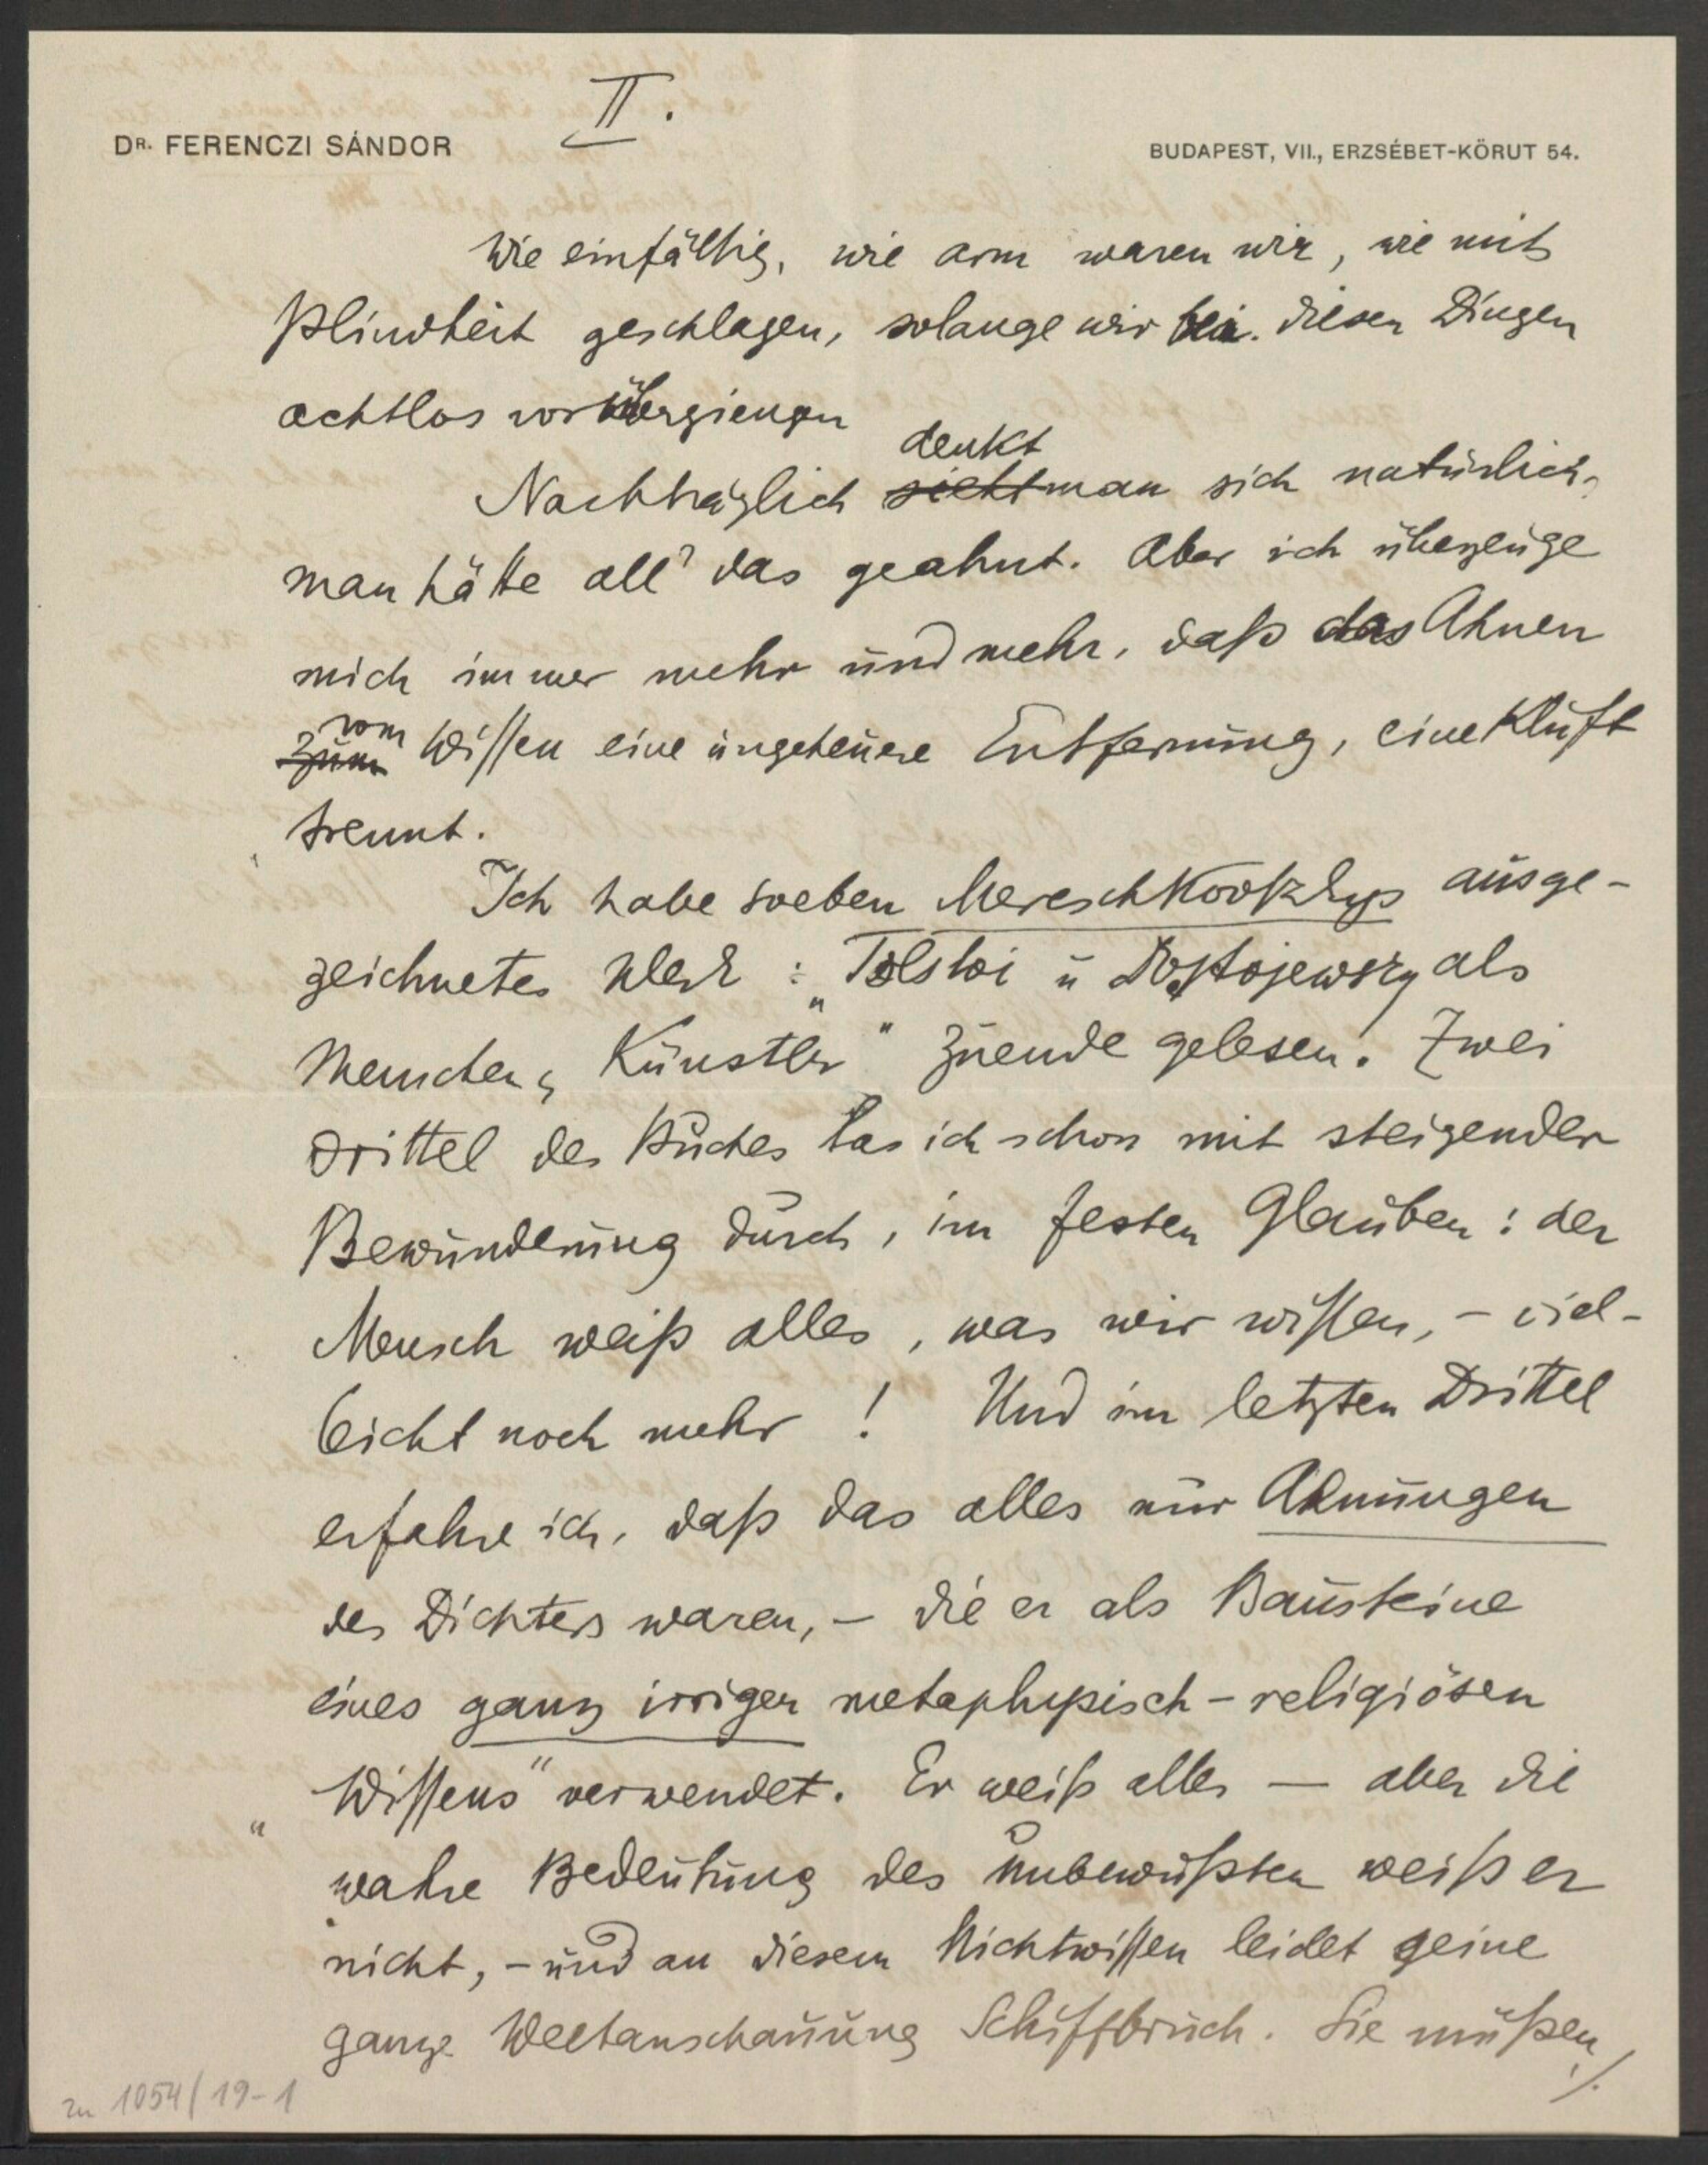 II.
DR. FERENCZI SÁNDOR
BUDAPEST, VII., ERZSÉBET-KÖRUT 54.
Wie einfältig, wie arm waren wir, wie mit
Blindheit geschlagen, solange wir bei diesen Dingen
achtlos vorübergiengen
denkt
Nachträglich sieht man sich natürlich,
man hätte all' das geahnt. Aber ich überzeuge
mich immer mehr und mehr, daß das Ahnen
vom
zum Wissen eine ungeheuere Entfernung, eine Kluft
trennt.
Ich habe soeben Mereschkovszkys ausge-
zeichnetes Werk: „Tolstoi u Dostojewszky als
Menschen u Künstler“ zuende gelesen. Zwei
Drittel des Buches las ich schon mit steigender
Bewunderung durch, im festen Glauben: der
Mensch weiß alles, was wir wissen, – viel-
leicht noch mehr! Und im letzten Drittel
erfahre ich, daß das alles nur Ahnungen
des Dichters waren, – die er als Bausteine
eines ganz irrigen metaphysisch-religiösen
„Wissens“ verwendet. Er weiß alles — aber die
wahre Bedeutung des unbewußten weiß er
nicht, – und an diesem Nichtwissen leidet seine
ganze Weltanschauung Schiffbruch. Sie müßen
./.
zu 1054/19-1